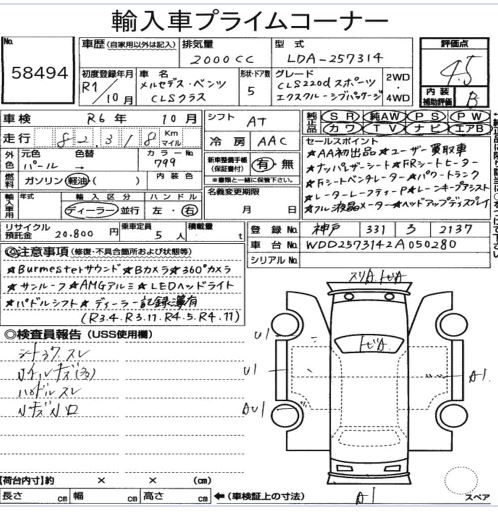 輸入車プライムコーナー
No. 58494
車歴 (自家用以外は記入) 排気量 2000CC 型式 LDA-257314 評価点 4.5
初度登録年月 R1/10月 車名 メルセデス・ベンツ CLSクラス 形状・ドア数 5 グレード CLS220d スポーツ エクスクルーシブパッケージ 2WD・4WD 内装補助評価 B
車検 R6年 10月 シフト AT 純正品 SR 純AW PS PW
走行 82,318 Km マイル 冷房 AAC カワ TV ナビ エアB
外色 元色 パール 色替 → カラーNo. 799 新車整備手帳(保証書付) 有・無 ※書類と一緒に保管下さい。
セールスポイント
★AA初出品 ★ユーザー買取車
★ナッパレザーシート ★FRシートヒーター
★Fシートベンチレーター ★パワートランク
★レーダーセーフティーP ★レーンキープアシスト
★フル液晶メーター ★ヘッドアップディスプレイ
燃料 ガソリン 軽油 ( ) 内装色
輸入車用 輸入区分 ディーラー 並行 ハンドル 左・右 名義変更期限 月 日
リサイクル預託金 20.800円 乗車定員 5人 積載量 t
登録 No. 神戸 331 ろ 2137
車台 No. WDD2573142A050280
シリアルNo.
◎注意事項 (修復・不具合箇所および状態等)
★Burmesterサウンド ★Bカメラ ★360°カメラ
★サンルーフ ★AMGアルミ ★LEDヘッドライト
★パドルシフト ★ディーラー記録簿有
(R3.4. R3.11. R4.5. R4.11)
◎検査員報告 (USS使用欄)
スリA トビA
トビA
U1
U1
AU1
A1
A1
シートコワ スレ
ハンドルスレ
【荷台内寸】約 × × (cm)
長さ cm 幅 cm 高さ cm ←(車検証上の寸法)
スペア